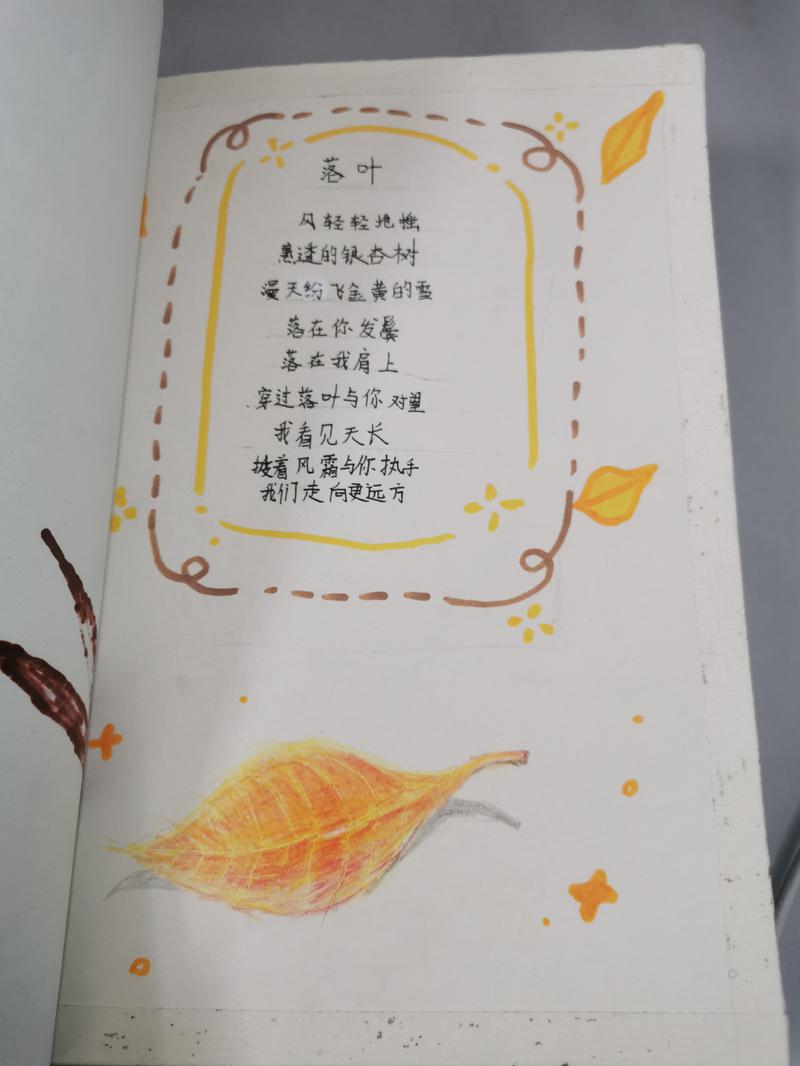 落叶
风轻轻地摇
熟透的银杏树
漫天纷飞金黄的雪
落在你发鬓
落在我肩上
穿过落叶与你对望
我看见天长
披着风霜与你执手
我们走向更远方